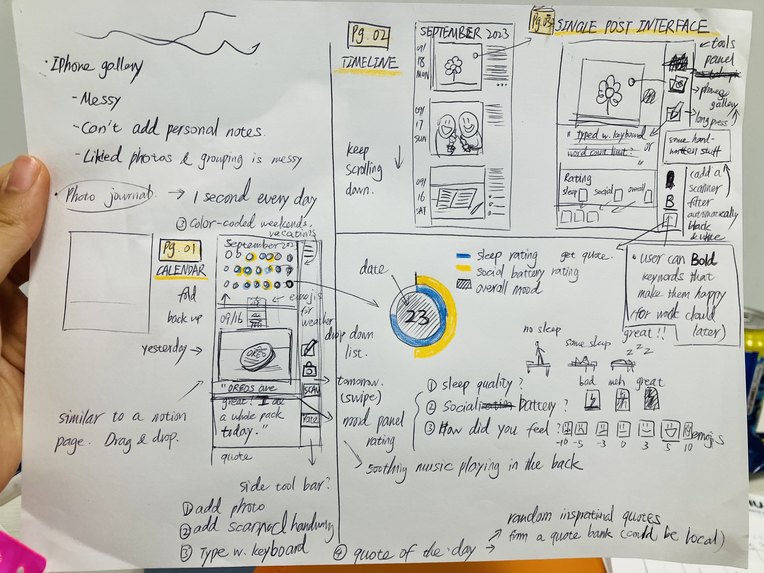 · Iphone gallery
- Messy
- Can't add personal notes.
- Liked photos & grouping is messy
· Photo journal. → 1 second every day
② color-coded weekends.
vacations
Pg. 01
CALENDAR
fold
back up
yesterday →
September 202
emojis
for
weather
09/16
OREO
"OREOS are
great! I ate
a whole pack
today."
quote
SCAN
rate
drop down
list.
tomorrow.
(swipe)
mood panel
rating
similar to a notion
page. Drag & drop.
side tool bar?
① add photo
② add scanned handwriting
③ Type w. keyboard
④ quote of the day →
random inspirational quotes
from a quote bank (could be local)
Pg. 02
TIMELINE
keep
scrolling
down.
SEPTEMBER 2023
09/
18
MON
09/
17
SUN
09/
16
SAT
Pg. 03
SINGLE POST INTERFACE
← tools
panel
→ phone
gallery
→ long press
"typed w. keyboard
word count limit?" or
some hand-
written stuff
Rating
sleep
social
overall
B
(add a
scanner
filter
automatically
black
& white
· user can Bold
keywords that
make them happy
(for word cloud
later)
great!!
sleep rating
social battery rating
overall mood
get quote.
date
23
no sleep
some sleep
z z z
bad
meh
great
① sleep quality?
② Social battery?
③ How did you feel?
emojis
-10 -5 -3 0 3 5 10
→ soothing music playing in the back